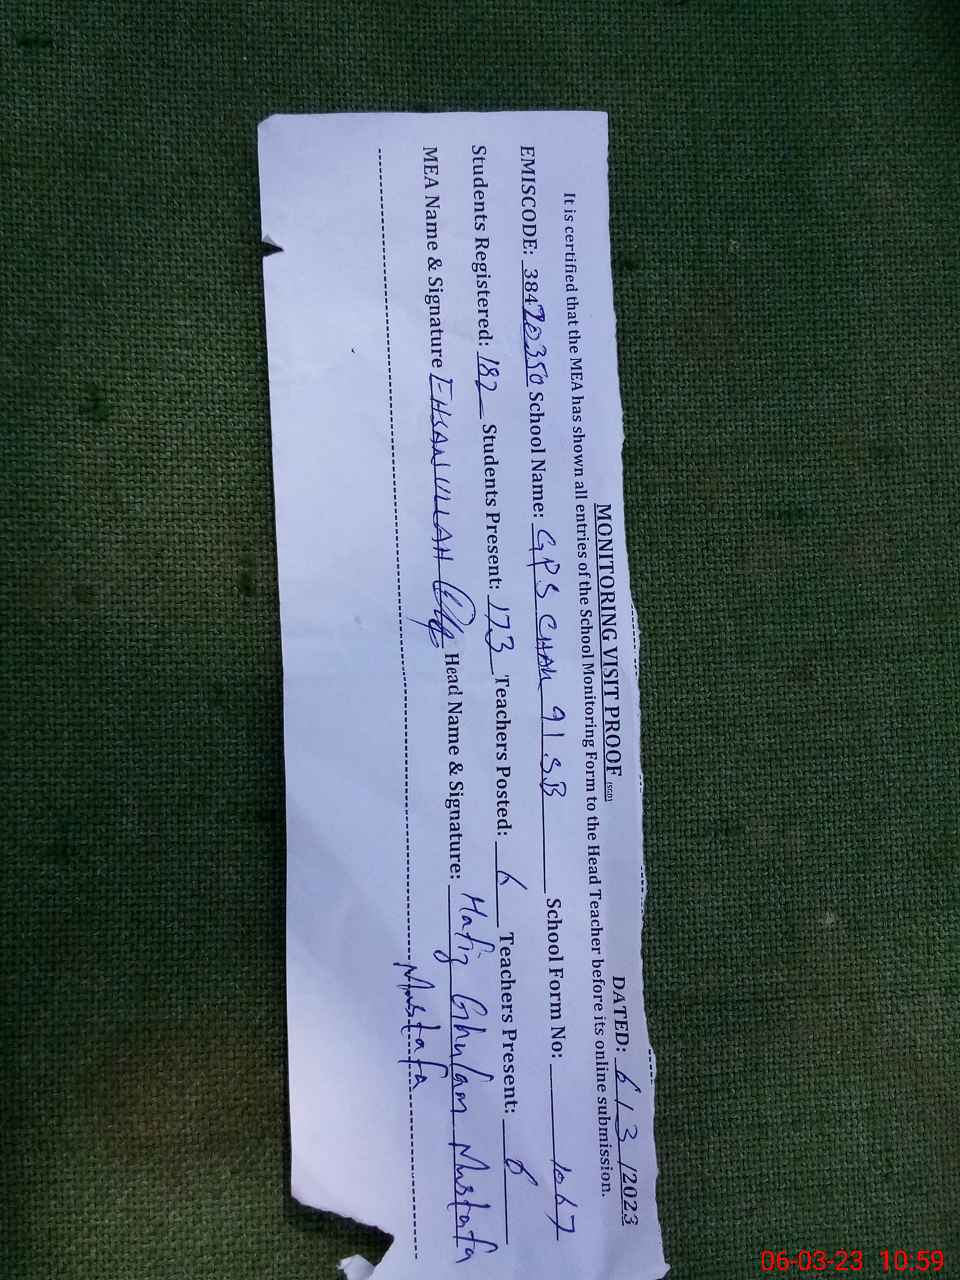 MONITORING VISIT PROOF (SGD) DATED: 6/3/2023
It is certified that the MEA has shown all entries of the School Monitoring Form to the Head Teacher before its online submission.
EMISCODE: 38470350 School Name: GPS CHAK 91 SB School Form No: 1067
Students Registered: 182 Students Present: 173 Teachers Posted: 6 Teachers Present: 6
MEA Name & Signature EHSAN ULLAH Head Name & Signature: Hafiz Ghulam Mustafa
Mustafa
06-03-23 10:59